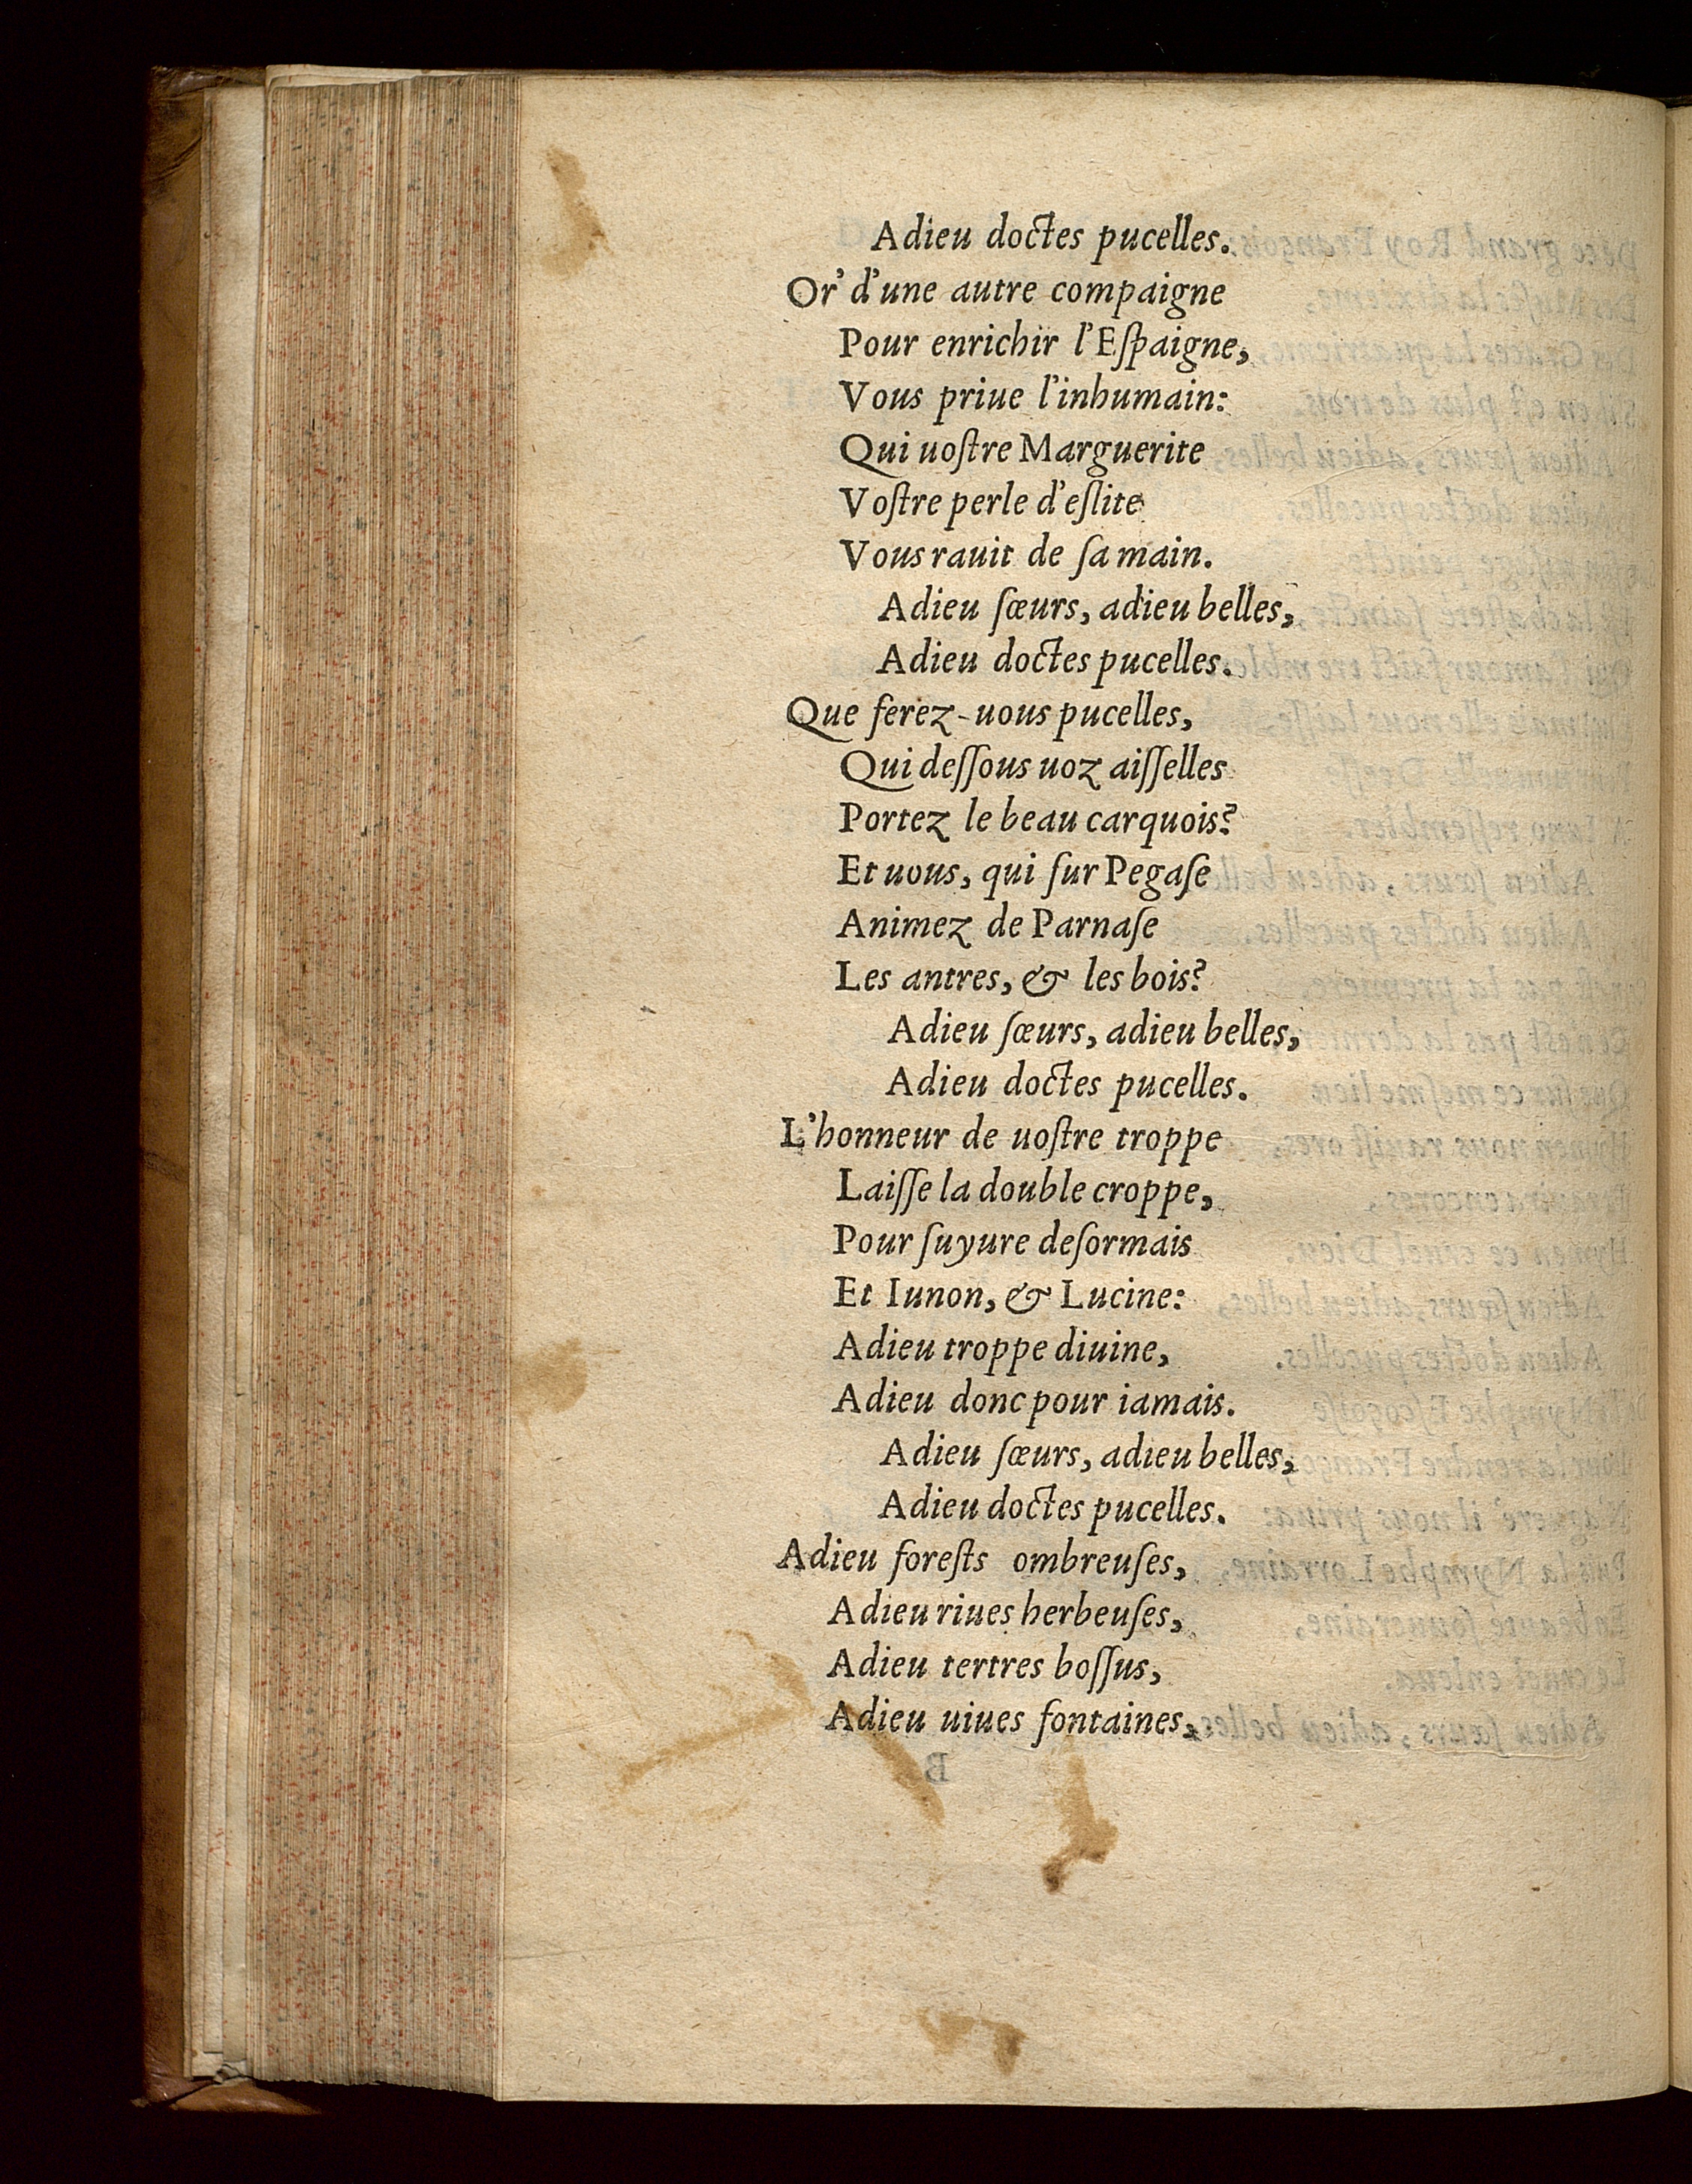 Adieu doctes pucelles.
Or' d'une autre compaigne
Pour enrichir l'Eſpaigne,
Vous priue l'inhumain:
Qui uoſtre Marguerite
Voſtre perle d'eſlite
Vous rauit de ſa main.
Adieu ſœurs, adieu belles,
Adieu doctes pucelles.
Que ferez-uous pucelles,
Qui deſſous uoz aiſſelles
Portez le beau carquois?
Et uous, qui ſur Pegaſe
Animez de Parnaſe
Les antres, & les bois?
Adieu ſœurs, adieu belles,
Adieu doctes pucelles.
L'honneur de uoſtre troppe
Laiſſe la double croppe,
Pour ſuyure deſormais
Et Iunon, & Lucine:
Adieu troppe diuine,
Adieu donc pour iamais.
Adieu ſœurs, adieu belles,
Adieu doctes pucelles.
Adieu foreſts ombreuſes,
Adieu riues herbeuſes,
Adieu tertres boſſus,
Adieu uiues fontaines,